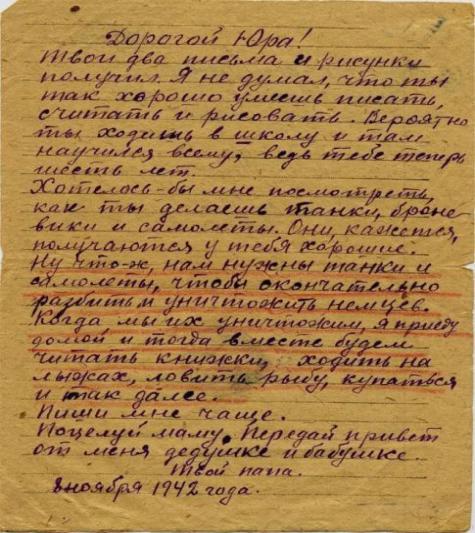 Дорогой Юра!
Твои два письма и рисунки
получил. Я не думал, что ты
так хорошо умеешь писать,
считать и рисовать. Вероятно
ты ходишь в школу и там
научился всему, ведь тебе теперь
шесть лет.
Хотелось-бы мне посмотреть,
как ты делаешь танки, броне
вики и самолеты. Они, кажется,
получаются у тебя хорошие.
Ну что-ж, нам нужны танки и
самолеты, чтобы окончательно
разбить и уничтожить немцев.
Когда мы их уничтожим, я приеду
домой и тогда вместе будем
читать книжки, ходить на
лыжах, ловить рыбу, купаться
и так далее.
Пиши мне чаще.
Поцелуй маму. Передай привет
от меня дедушке и бабушке.
Твой папа.
8 ноября 1942 года.